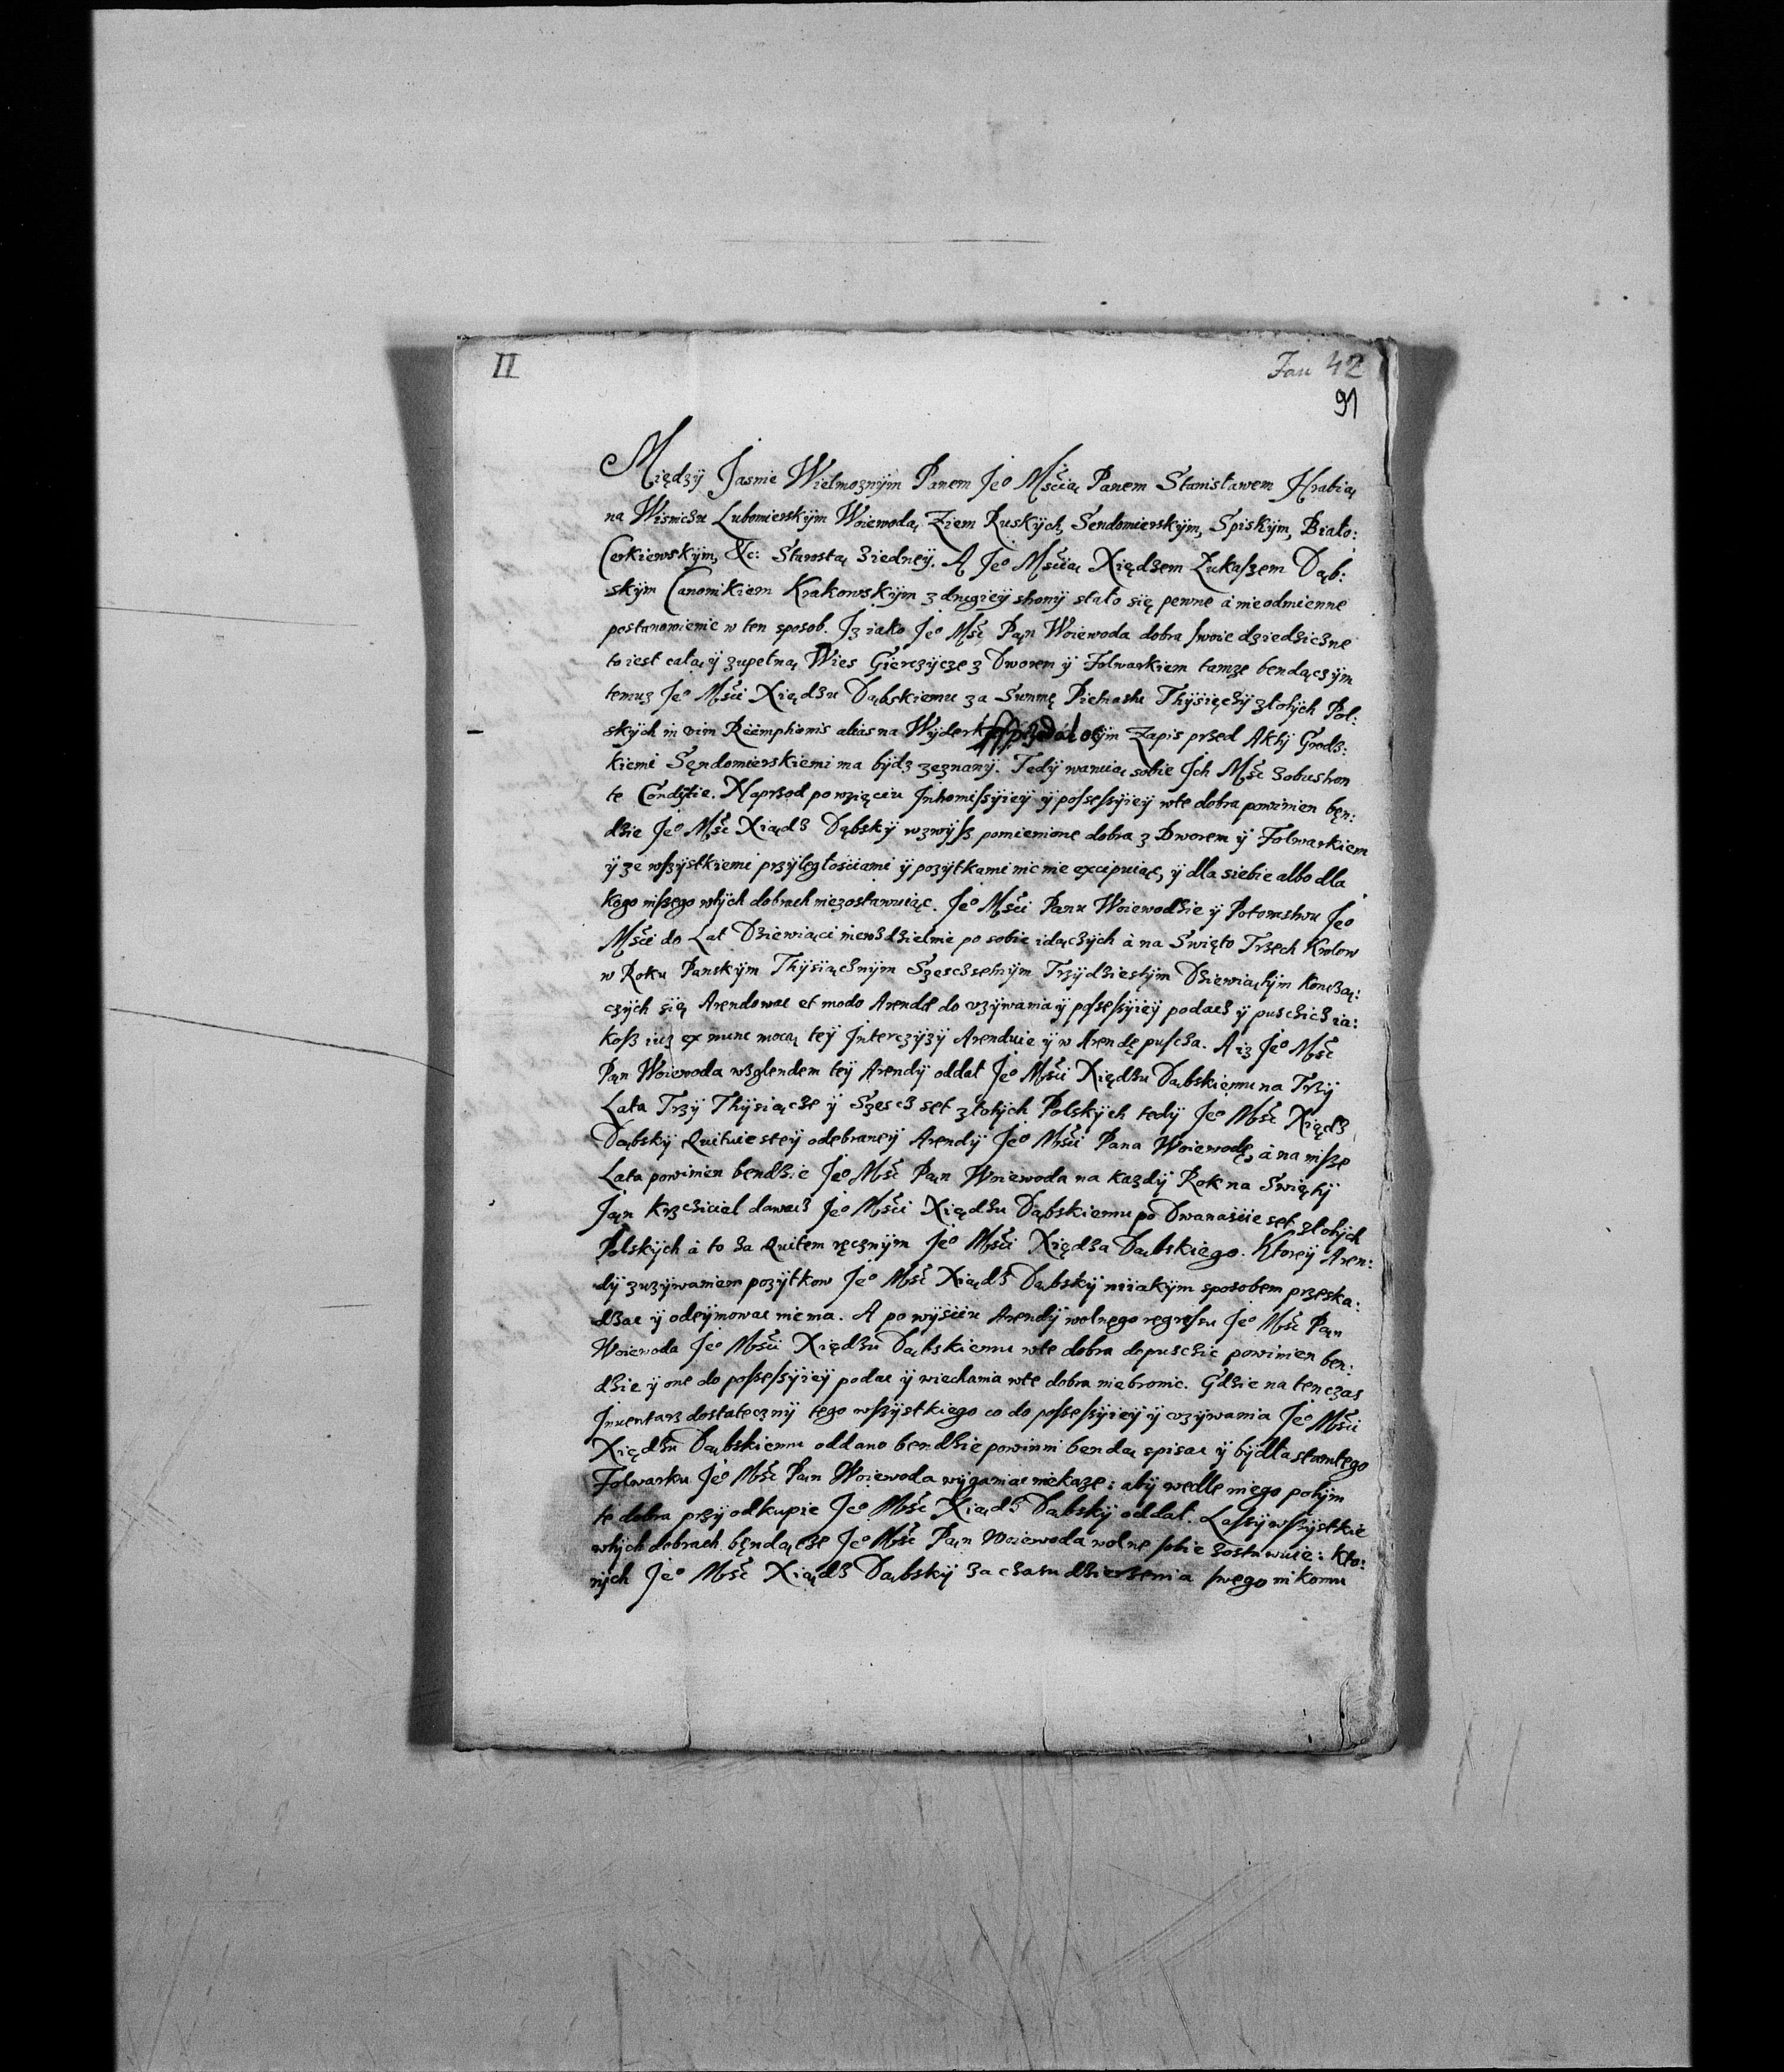 II
Fau 42
91
Między Jasnie Wielmoznÿm Panem Jeº Mścią Panem Stanisławem Hrabią
na Wisniczu Lubomierskÿm Woiewodą Ziem Ruskÿch, Sendomierskÿm, Spiskÿm, Biało:
Cerkiewskÿm, &c: Starostą ziedneÿ. A Jeº Mścią Xiędzem Łukaſzem Dąb:
skÿm Canonikiem Krakowskÿm z drugieÿ stronÿ stało się pewne à nieodmienne
postanowienie w ten sposob. Jz iako Jeº Mść Pąn Woiewoda dobra ſwoie dziedziczne
to iest całą ÿ zupełną Wies Gierczÿcze z Dworem ÿ Folwarkiem tamze bendączÿm
temuz Jeº Mści Xiądzu Dąbskiemu za Summę Pietnastu Thÿsięcÿ złotÿch Pol:
skÿch in vim Reëmptionis alias na Wÿderk ſſprzedał oczÿm Zapis przed Aktÿ Grodz:
kiemi Sęndomierskiemi ma bÿdz zeznanÿ. Tedÿ waruią sobie Jch Mść zobustron
te Condÿtie. Naprzod po wzięciu Jntromiſsÿieÿ ÿ poſseſsÿieÿ wte dobra powinien bęn:
dzie Jeº Mść Xiądz Dąbskÿ wzwÿſz pomienione dobra z Dworem ÿ Folwarkiem
ÿ ze wſzÿstkiemi przÿległościami ÿ pozÿtkami nic nie excipuiąc, ÿ dla siebie albo dla
kogo inſzego wtÿch dobrach niezostawuiąc. Jeº Mści Panu Woiewodzie ÿ Potomstwu Jeº
Mści do Lat Dziewiąci nierozdzielnie po sobie idączÿch à na Swięto Trzech Krolow
w Roku Panskÿm Thÿsiącznÿm Szesczsetnÿm Trzÿdziestÿm Dziewiątÿm koncżą:
czÿch się Arendowac et modo Arendæ do vzÿwania ÿ poſseſsÿieÿ podacz ÿ pusczicz ia:
koſz iuz ex nunc mocą teÿ Jnterczÿzÿ Arenduie ÿ w Arendę puſcza. A iz Jeº Mść
Pąn Woiewoda wzglendem teÿ Arendÿ oddał Jeº Mści Xiędzu Dąbskiemu na Trzÿ
Lata Trzÿ Thÿsiącze ÿ Szescz set złotÿch Polskÿch tedÿ Jeº Mść Xiądz
Dąbskÿ Quituie steÿ odebraneÿ Arendÿ Jeº Mści Pana Woiewodę, à na inſze
Lata powinien bendzie Jeº Mść Pąn Woiewoda na kazdÿ Rok na Swiętÿ
Jąn Krzciciel dawacz Jeº Mści Xiędzu Dąbskiemu po Dwanaście set złotÿch
Polskÿch à to za Quitem ręcznÿm Jeº Mści Xiędza Dąbskiego. Ktoreÿ Aren:
dÿ zuzÿwaniem pozÿtkow Jeº Mść Xiądz Dąbskÿ niiakÿm sposobem przeska:
dzac ÿ odeÿmowac nie ma. A po wÿściu Arendÿ wolnego regreſsu Jeº Mść Pąn
Woiewoda Jeº Mści Xiędzu Dąbskiemu wte dobra dopuscic powinien ben:
dzie ÿ one do poſseſsÿieÿ podac ÿ wiechania wte dobra nie bronic. Gdzie na tenczas
Jnuentarz dostatecznÿ tego wſzÿstkiego co do poſseſsÿieÿ ÿ vzÿwania Jeº Mści
Xiędzu Dąbskiemu oddano bendzie powinni bendą spisac ÿ bÿdła stamtego
Folwarku Jeº Mść Pąn Woiewoda wÿganiac niekaze: abÿ wedle niego potÿm
te dobra przÿ odkupie Jeº Mść Xiądz Dąbskÿ oddał. Laſsÿ wſzÿstkie
wtÿch dobrach bęndącze Jeº Mść Pąn Woiewoda wolne ſobie zostawuie: kto:
rÿch Jeº Mść Xiądz Dąbskÿ za czasu dzierzenia ſwego nikomu